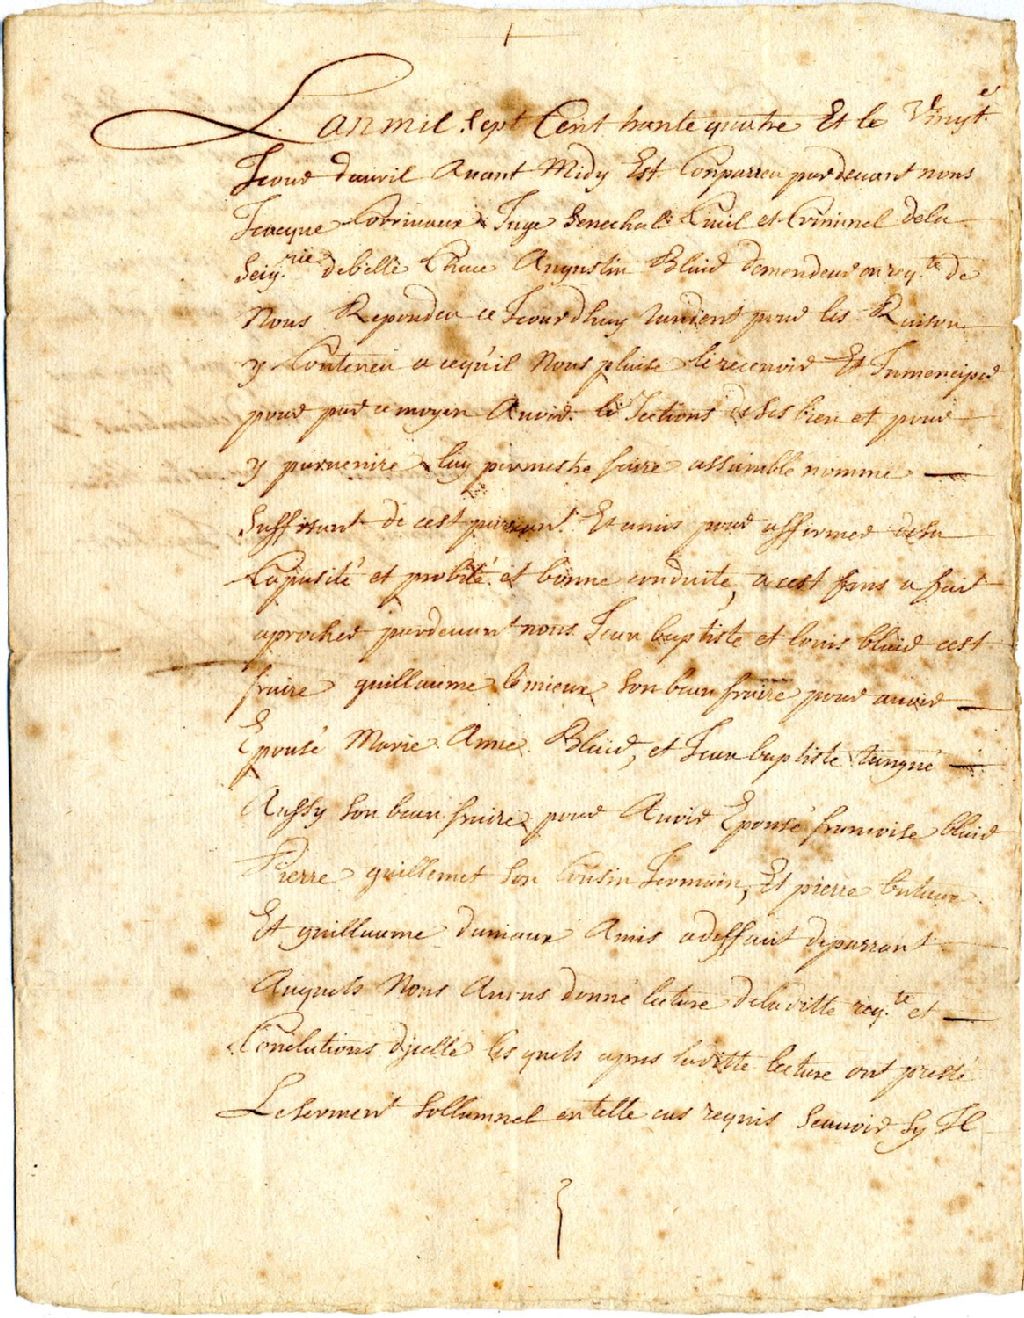 Lan mil sept Cent trante quatre Et le Vingt.e
Jour davril Avant Midy Est Conparreu pardevant nous
Jacque Juge Senechal Civil et Criminel dela
Seig.rie debelle Chace Augustin Blaid demendeur en req.te de
Nous Reponduu ce Jourdhuy tandent pour les Raison
y Conteneu a ceq'uil Nous plaise le recevoir Et Inmenciper
pour par ce moyen Avoir le Jections de Ses bien et pour
y parvenire luy permettre faire assamble nomme
Suffisant de cest parrant Et amis pour affermer de sa
Capasité et probité et bonne conduite, a cest fans a fait
aprocher pardevant nous Jean baptiste et louis blaid cest
fraire guillaume lemieux son beau fraire pour avoir
Epousé Marie Anne Blaid, et Jean baptiste tangué
Aussy son beau fraire pour Avoir Epousé francoise blaid
Pierre guillemet son Cousin Jermain, Et pierre
Et guillaume Amis adeffaut deparrant
Auquels Nous Avons donné lecture deladitte req.te et
Conclutions djcelle les quels apres laditte lecture ont presté
Le serment sollamnel en telle cas requis Scavoir sy Il